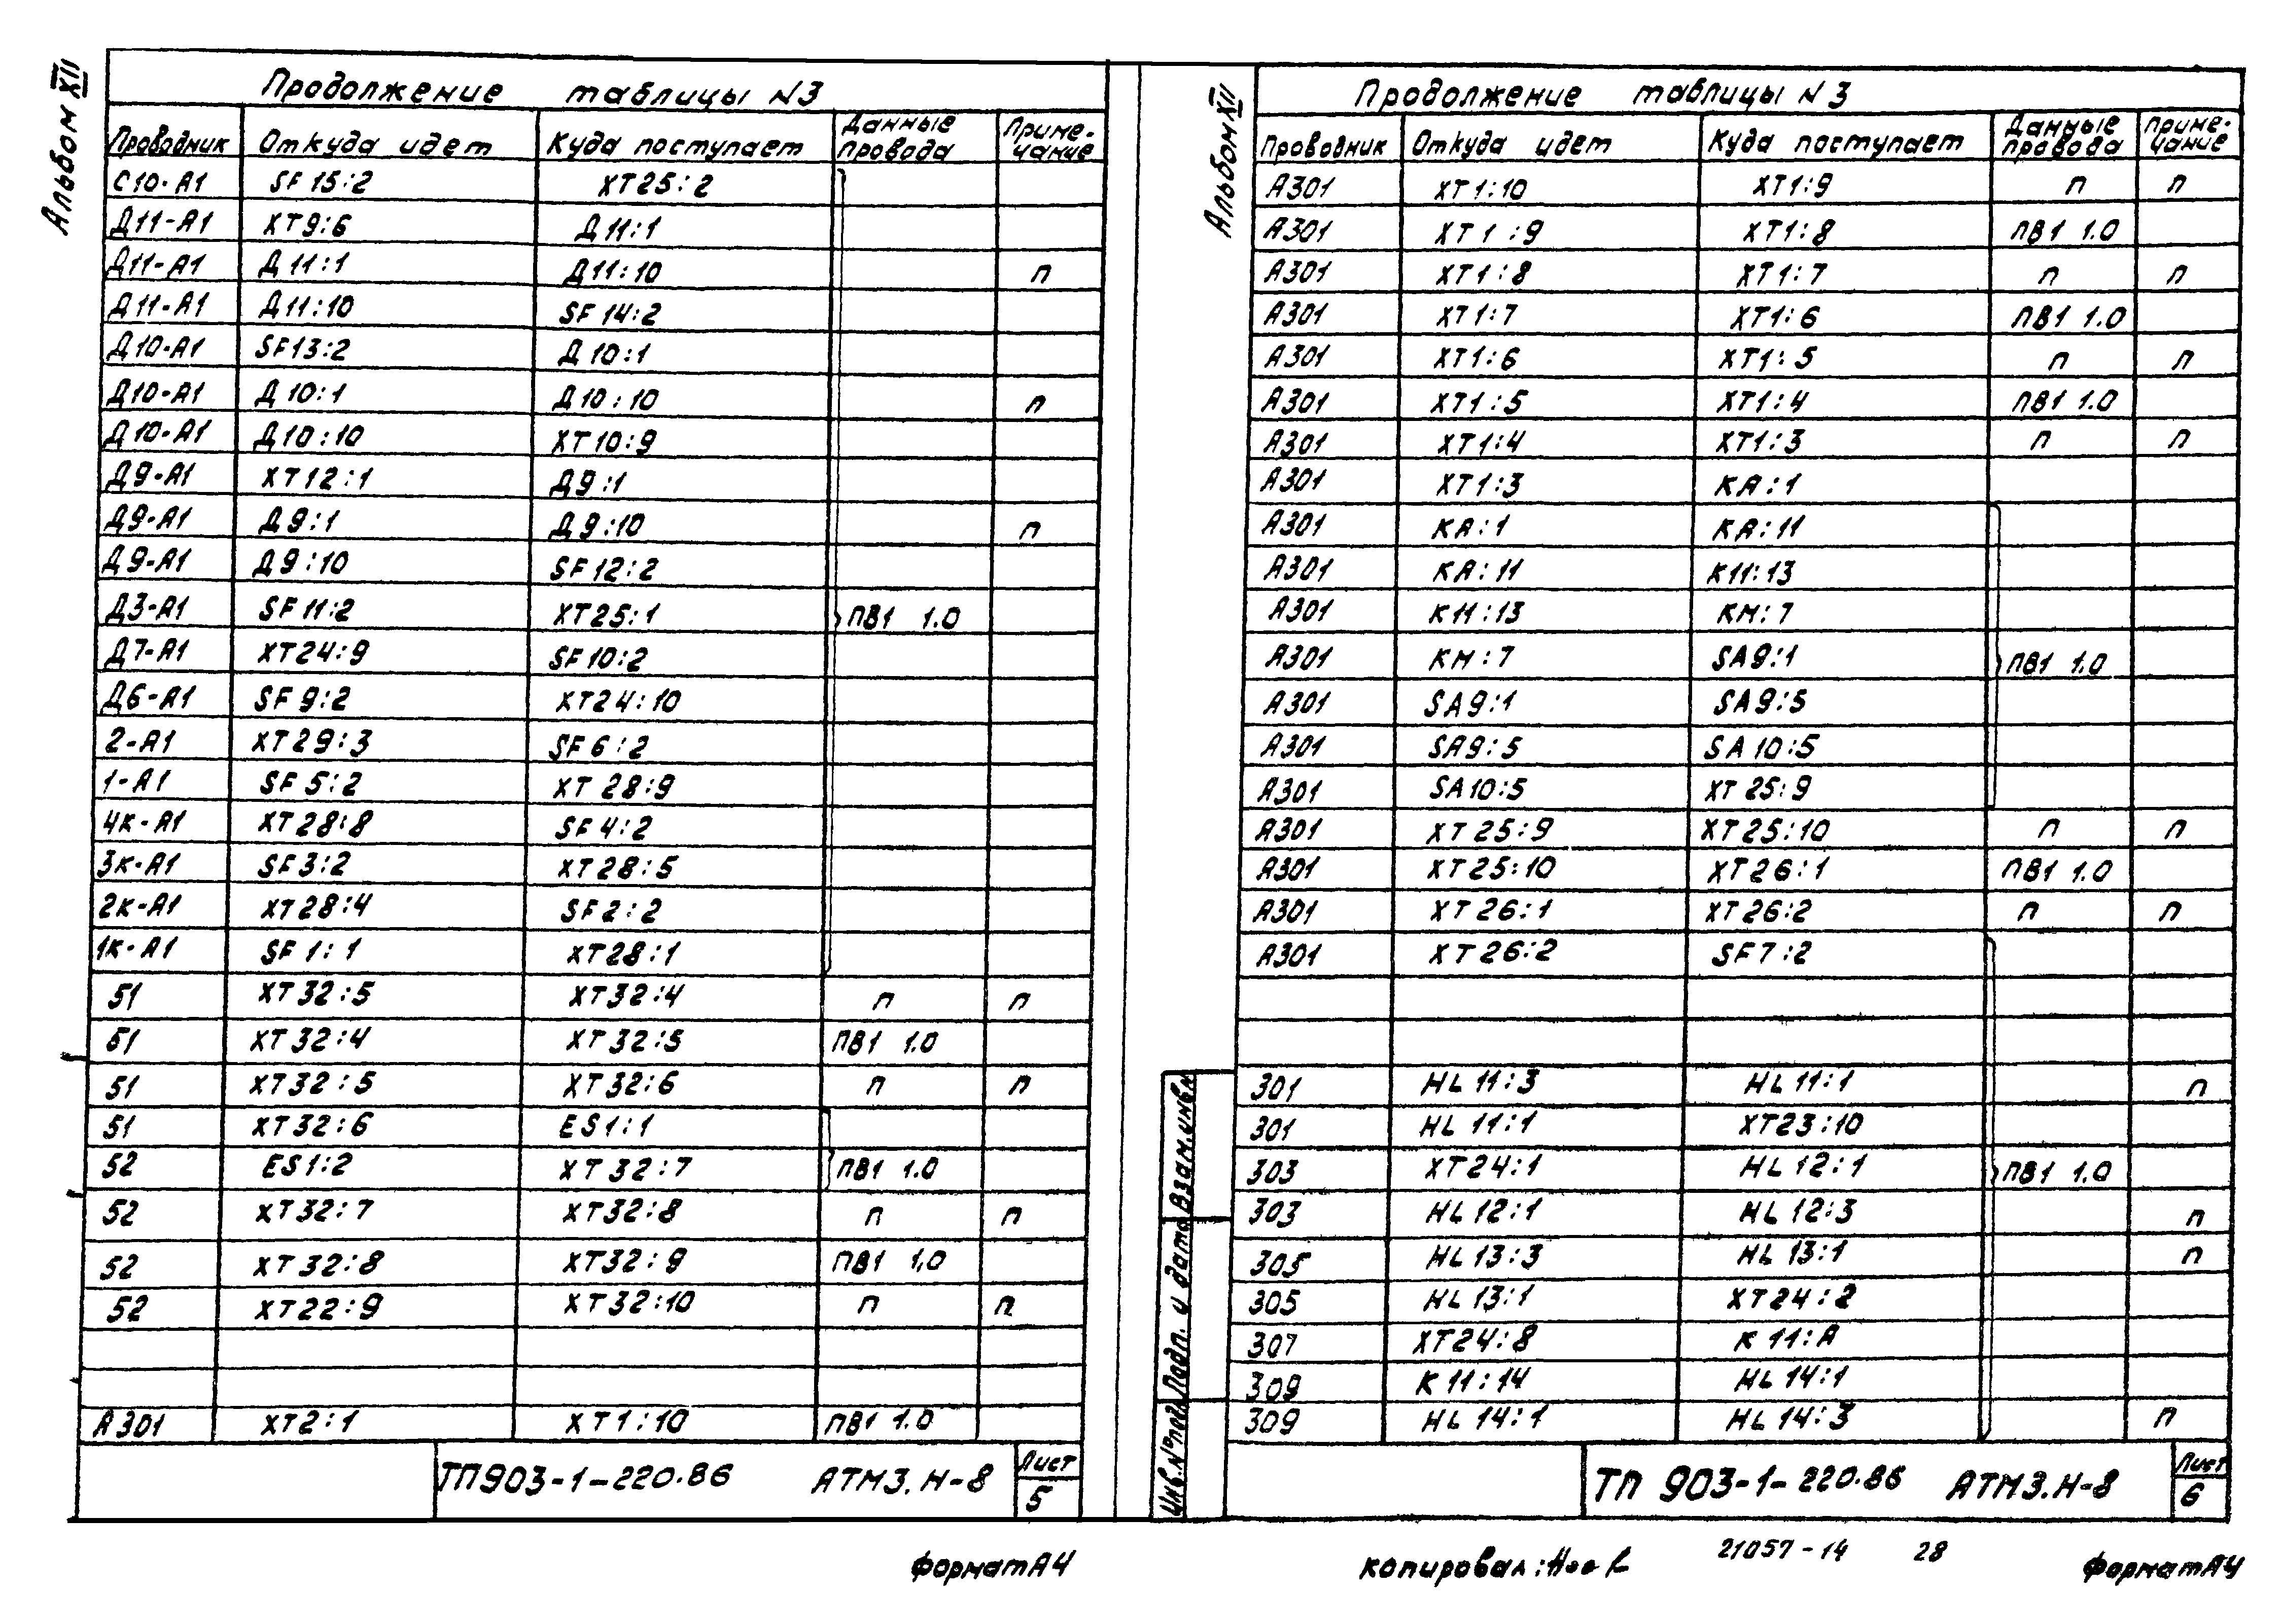 Альбом XII
Продолжение таблицы N3
Проводник Откуда идет Куда поступает Данные провода Приме-чание
С10-А1 SF15:2 ХТ25:2
Д11-А1 ХТ9:6 Д11:1
Д11-А1 Д11:1 Д11:10 п
Д11-А1 Д11:10 SF14:2
Д10-А1 SF13:2 Д10:1
Д10-А1 Д10:1 Д10:10 п
Д10-А1 Д10:10 ХТ10:9
Д9-А1 ХТ12:1 Д9:1
Д9-А1 Д9:1 Д9:10 п
Д9-А1 Д9:10 SF12:2
Д3-А1 SF11:2 ХТ25:1 ПВ1 1.0
Д7-А1 ХТ24:9 SF10:2
Д6-А1 SF9:2 ХТ24:10
2-А1 ХТ29:3 SF6:2
1-А1 SF5:2 ХТ28:9
4К-А1 ХТ28:8 SF4:2
3К-А1 SF3:2 ХТ28:5
2К-А1 ХТ28:4 SF2:2
1К-А1 SF1:1 ХТ28:1
51 ХТ32:5 ХТ32:4 п п
51 ХТ32:4 ХТ32:5 ПВ1 1.0
51 ХТ32:5 ХТ32:6 п п
51 ХТ32:6 ES1:1
52 ES1:2 ХТ32:7 ПВ1 1.0
52 ХТ32:7 ХТ32:8 п п
52 ХТ32:8 ХТ32:9 ПВ1 1,0
52 ХТ22:9 ХТ32:10 п п
А301 ХТ2:1 ХТ1:10 ПВ1 1.0
ТП903-1-220.86 АТМ3.Н-8 Лист 5
формат А4
Альбом XII
Продолжение таблицы N3
Проводник Откуда идет Куда поступает Данные провода Приме-чание
А301 ХТ1:10 ХТ1:9 п п
А301 ХТ1:9 ХТ1:8 ПВ1 1.0
А301 ХТ1:8 ХТ1:7 п п
А301 ХТ1:7 ХТ1:6 ПВ1 1.0
А301 ХТ1:6 ХТ1:5 п п
А301 ХТ1:5 ХТ1:4 ПВ1 1.0
А301 ХТ1:4 ХТ1:3 п п
А301 ХТ1:3 КА:1
А301 КА:1 КА:11
А301 КА:11 К11:13
А301 К11:13 КМ:7
А301 КМ:7 SA9:1 ПВ1 1.0
А301 SA9:1 SA9:5
А301 SA9:5 SA10:5
А301 SA10:5 ХТ25:9
А301 ХТ25:9 ХТ25:10 п п
А301 ХТ25:10 ХТ26:1 ПВ1 1.0
А301 ХТ26:1 ХТ26:2 п п
А301 ХТ26:2 SF7:2
301 HL11:3 HL11:1 п
301 HL11:1 ХТ23:10
303 ХТ24:1 HL12:1 ПВ1 1.0
303 HL12:1 HL12:3 п
305 HL13:3 HL13:1 п
305 HL13:1 ХТ24:2
307 ХТ24:8 К11:А
309 К11:14 HL14:1
309 HL14:1 HL14:3 п
Инв.№подл. Подп. и дата Взам.инв.н
ТП 903-1-220.86 АТМ3.Н-8 Лист 6
копировал:
21057-14 28
формат А4